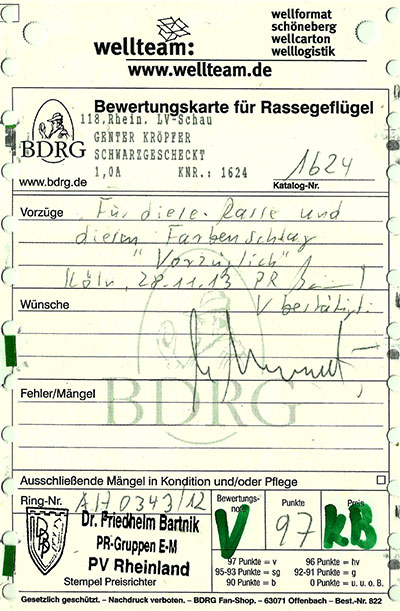 wellteam:
wellformat
schöneberg
wellcarton
welllogistik
www.wellteam.de
Bewertungskarte für Rassegeflügel
118.Rhein. LV-Schau
GENTER KRÖPFER
SCHWARZGESCHECKT
1,0A KNR.: 1624
BDRG
www.bdrg.de
1624
Katalog-Nr.
Vorzüge
Für diese Rasse und
diesen Farbenschlag
"Vorzüglich"
Köln, 28.11.13 PR
Wünsche
V bestätigt.
BDRG
Fehler/Mängel
Ausschließende Mängel in Kondition und/oder Pflege
Ring-Nr. AH 0343/12
Dr. Friedhelm Bartnik
PR-Gruppen E-M
PV Rheinland
Stempel Preisrichter
Bewertungs-
note
V
Punkte
97
Preis
KB
97 Punkte = v 96 Punkte = hv
95-93 Punkte = sg 92-91 Punkte = g
90 Punkte = b 0 Punkte = u. u. o. B.
Gesetzlich geschützt. – Nachdruck verboten. – BDRG Fan-Shop. – 63071 Offenbach – Best.-Nr. 822